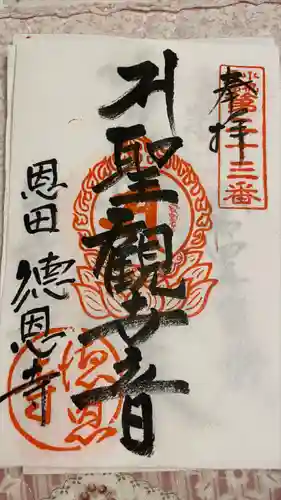 奉拝
第二十三番
聖観世音
恩田
徳恩寺